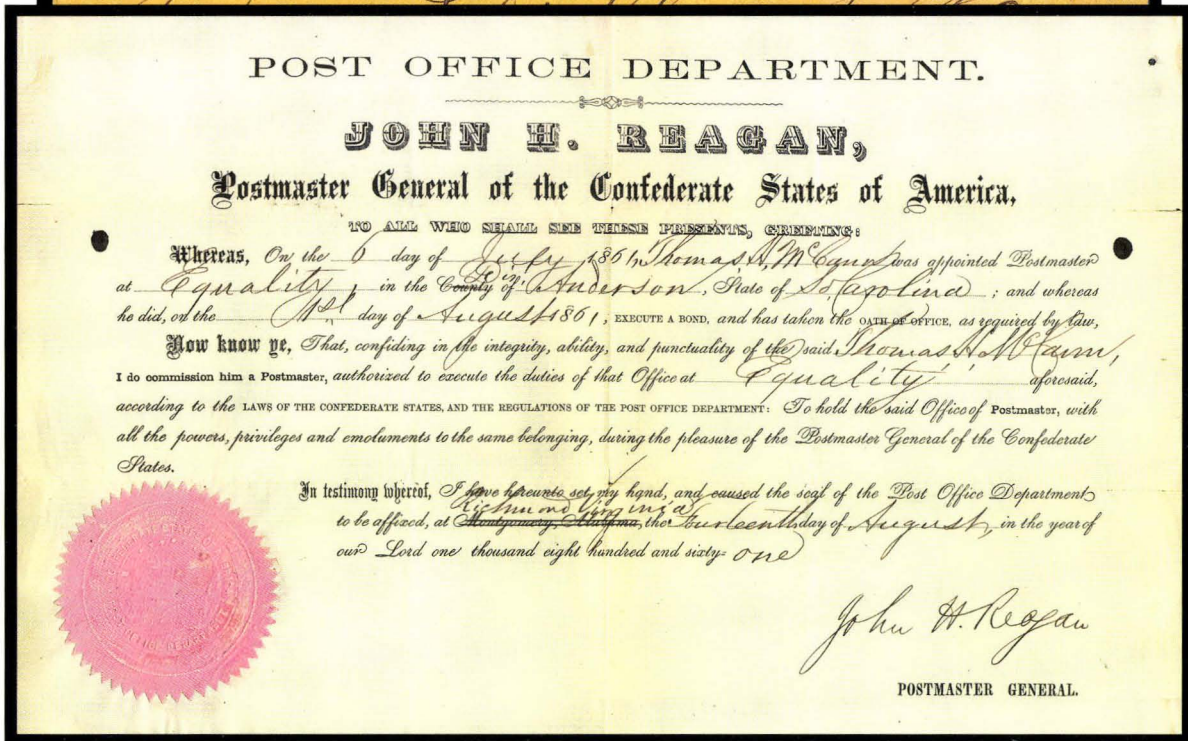 POST OFFICE DEPARTMENT.
JOHN H. REAGAN,
Postmaster General of the Confederate States of America,
TO ALL WHO SHALL SEE THESE PRESENTS, GREETING:
Whereas, On the 6 day of July 1861, Thomas A. McCann was appointed Postmaster
at Equality, in the County of Dis Anderson, State of So Carolina; and whereas
he did, on the 1st day of August 1861, EXECUTE A BOND, and has taken the OATH OF OFFICE, as required by law,
Now know ye, That, confiding in the integrity, ability, and punctuality of the said Thomas A McCann,
I do commission him a Postmaster, authorized to execute the duties of that Office at Equality, aforesaid,
according to the LAWS OF THE CONFEDERATE STATES, AND THE REGULATIONS OF THE POST OFFICE DEPARTMENT: To hold the said Office of Postmaster, with
all the powers, privileges and emoluments to the same belonging, during the pleasure of the Postmaster General of the Confederate
States.
In testimony whereof, I have hereunto set my hand, and caused the seal of the Post Office Department
Richmond Virginia
to be affixed, at Montgomery, Alabama, the Fourteenth day of August, in the year of
our Lord one thousand eight hundred and sixty-one
John H. Reagan
POSTMASTER GENERAL.